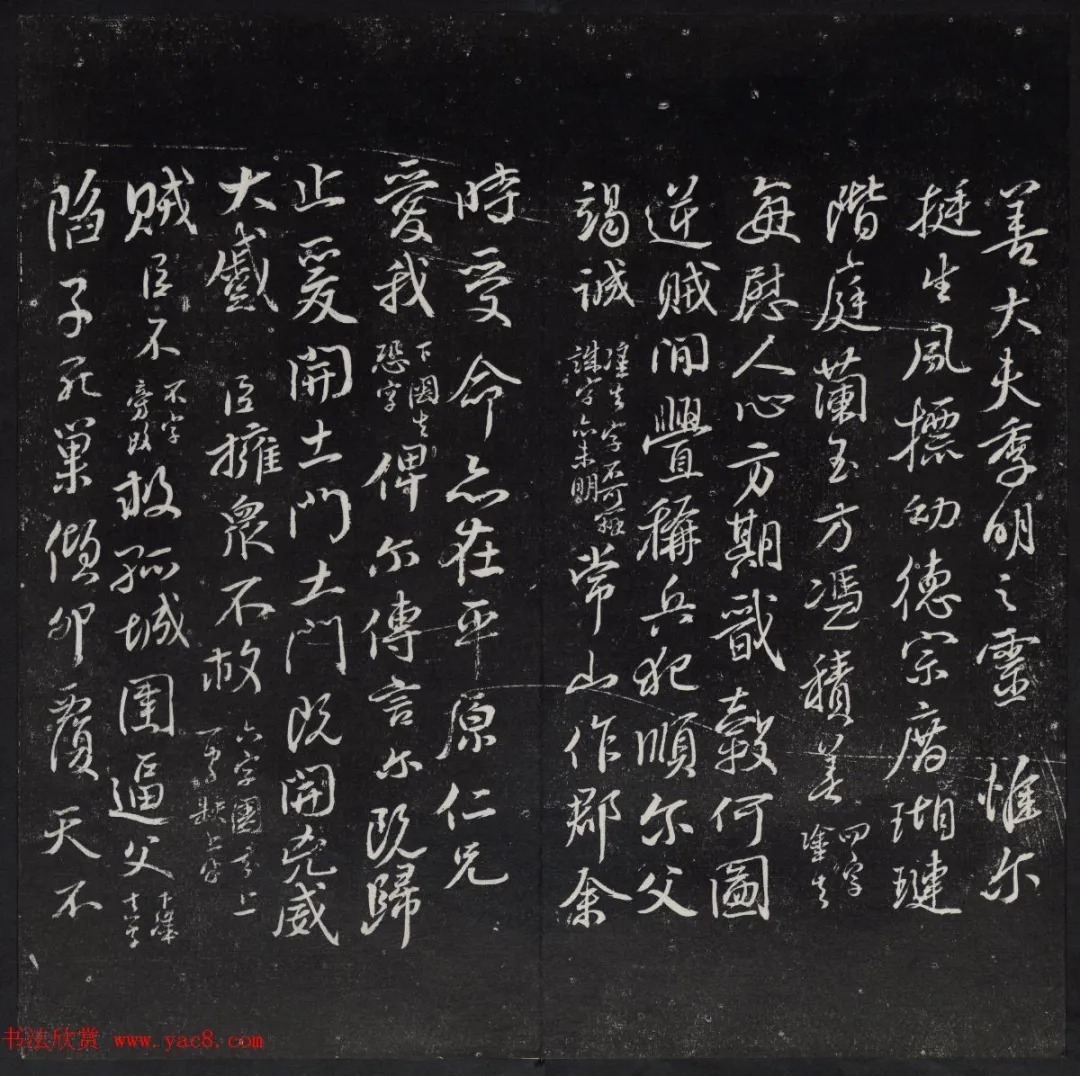 善大夫季明之靈 惟尔
挺生夙標幼德宗廟瑚璉
階庭蘭玉方馮積善 四字塗去
每慰人心方期戩穀何圖
逆賊間釁稱兵犯順尔父
竭誠 塗去字不可辨誅字亦未明 常山作郡余
時受命亦在平原仁兄
愛我 下圈去恐字 俾尔傳言尔既歸
止爰開土門土門既開兇威
大蹙 臣擁衆不救 六字圈去上一
賊臣不 不字旁改 救孤城圍逼父
陷子死巢傾卵覆天不
书法欣赏 www.yac8.com